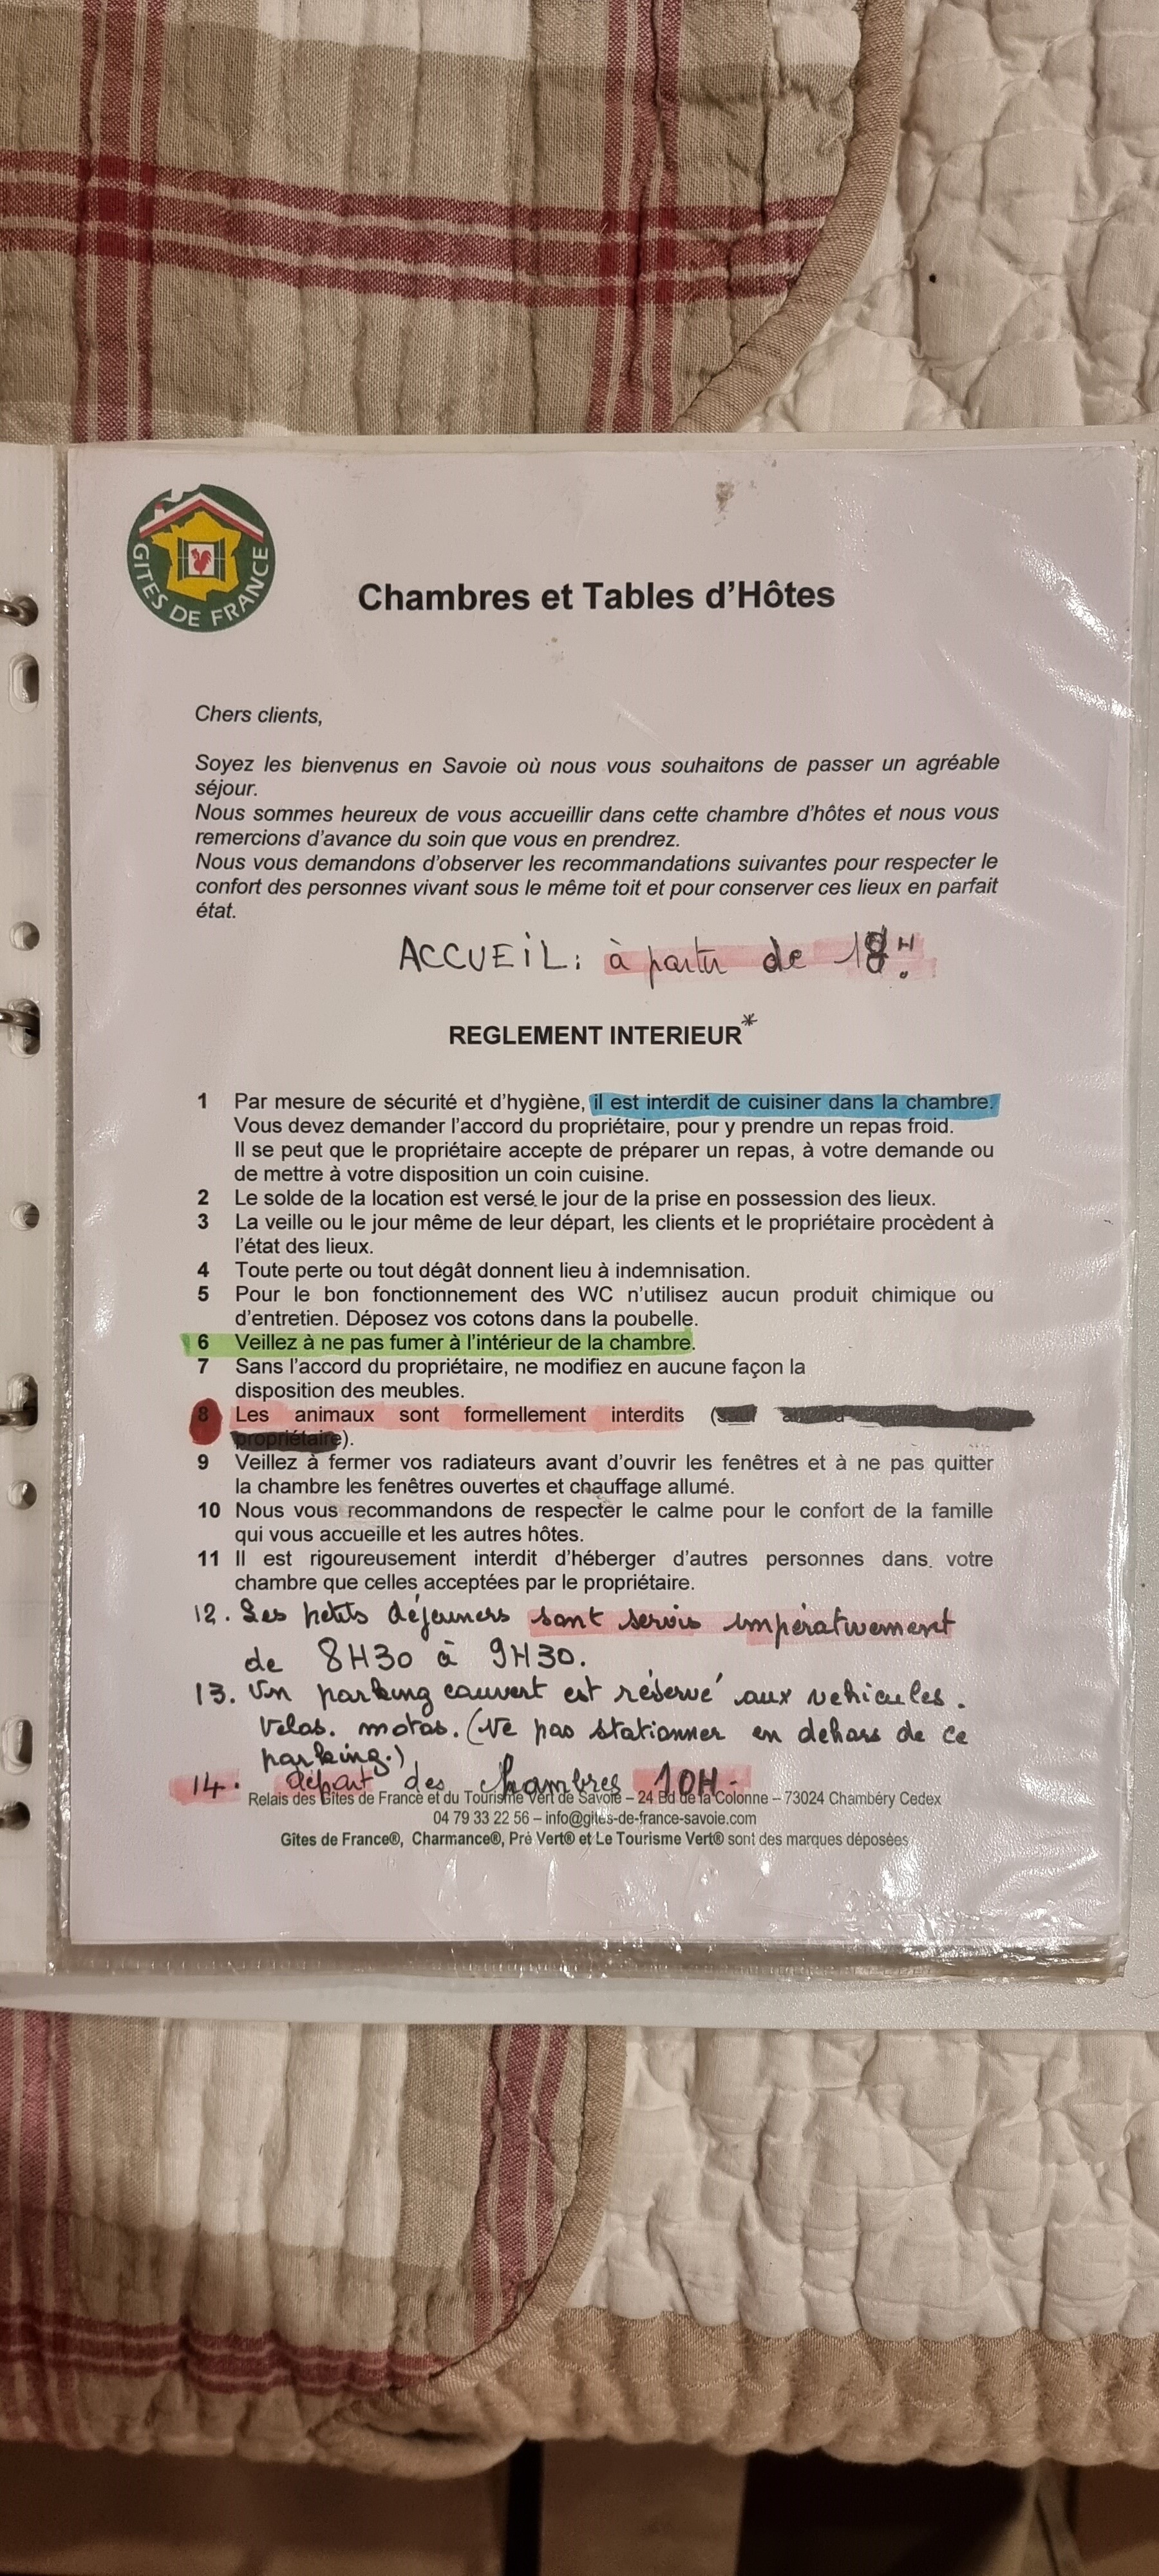 GITES DE FRANCE
Chambres et Tables d'Hôtes
Chers clients,
Soyez les bienvenus en Savoie où nous vous souhaitons de passer un agréable
séjour.
Nous sommes heureux de vous accueillir dans cette chambre d'hôtes et nous vous
remercions d'avance du soin que vous en prendrez.
Nous vous demandons d'observer les recommandations suivantes pour respecter le
confort des personnes vivant sous le même toit et pour conserver ces lieux en parfait
état.
ACCUEIL: à partir de
REGLEMENT INTERIEUR*
1 Par mesure de sécurité et d'hygiène, il est interdit de cuisiner dans la chambre.
Vous devez demander l'accord du propriétaire, pour y prendre un repas froid.
Il se peut que le propriétaire accepte de préparer un repas, à votre demande ou
de mettre à votre disposition un coin cuisine.
2 Le solde de la location est versé le jour de la prise en possession des lieux.
3 La veille ou le jour même de leur départ, les clients et le propriétaire procèdent à
l'état des lieux.
4 Toute perte ou tout dégât donnent lieu à indemnisation.
5 Pour le bon fonctionnement des WC n'utilisez aucun produit chimique ou
d'entretien. Déposez vos cotons dans la poubelle.
6 Veillez à ne pas fumer à l'intérieur de la chambre.
7 Sans l'accord du propriétaire, ne modifiez en aucune façon la
disposition des meubles.
8 Les animaux sont formellement interdits (
propriétaire).
9 Veillez à fermer vos radiateurs avant d'ouvrir les fenêtres et à ne pas quitter
la chambre les fenêtres ouvertes et chauffage allumé.
10 Nous vous recommandons de respecter le calme pour le confort de la famille
qui vous accueille et les autres hôtes.
11 Il est rigoureusement interdit d'héberger d'autres personnes dans votre
chambre que celles acceptées par le propriétaire.
12. Les petits déjeuners sont servis impérativement
de 8H30 à 9H30.
13. Un parking couvert est réservé aux vehicules.
Velos. motos. (Ne pas stationner en dehors de ce
parking.)
14. départ des chambres 10H.
Relais des Gîtes de France et du Tourisme Vert de Savoie – 24 Bd de la Colonne – 73024 Chambéry Cedex
04 79 33 22 56 – info@gites-de-france-savoie.com
Gîtes de France®, Charmance®, Pré Vert® et Le Tourisme Vert® sont des marques déposées